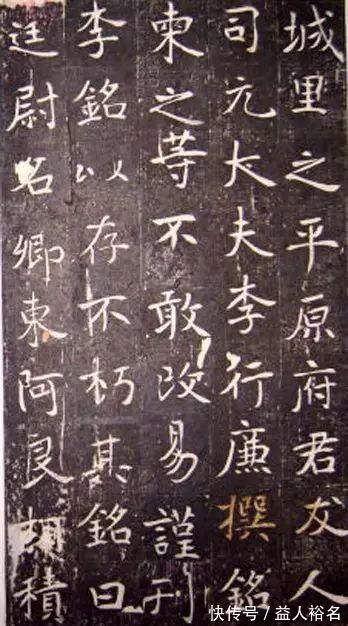 城里之平原府君友人
司元大夫李行廉撰銘
柬之等不敢改易謹刊
李銘以存不朽其銘曰
廷尉名卿東阿良相積
快传号 / 益人裕名